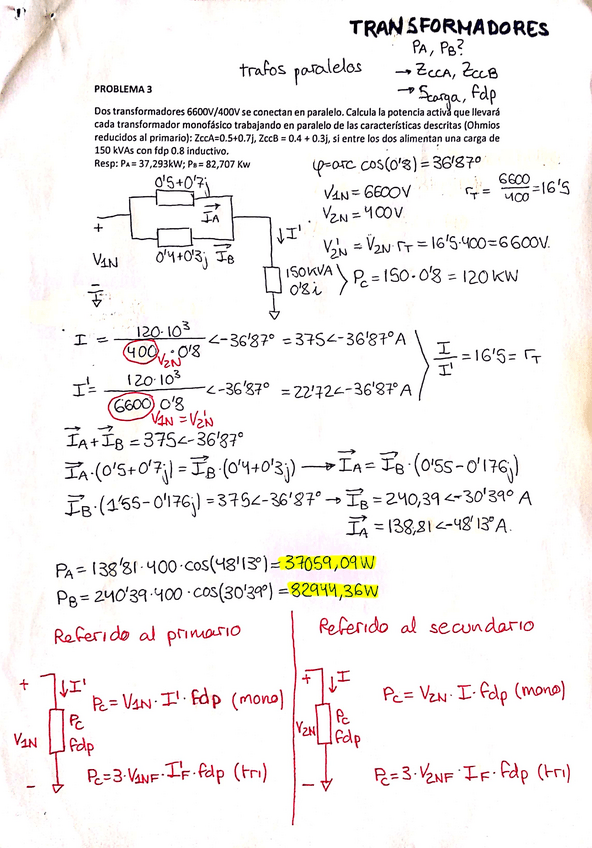 TRANSFORMADORES
PA, PB?
trafos paralelos
→ ZccA, ZccB
→ Scarga, fdp
PROBLEMA 3
Dos transformadores 6600V/400V se conectan en paralelo. Calcula la potencia activa que llevará
cada transformador monofásico trabajando en paralelo de las características descritas (Ohmios
reducidos al primario): ZccA=0.5+0.7j, ZccB = 0.4 + 0.3j, si entre los dos alimentan una carga de
150 kVAs con fdp 0.8 inductivo.
Resp: PA = 37,293kW; PB = 82,707 Kw
φ=arc cos(0'8) = 36'87º
0'5+0'7j
IA
V1N = 6600V
rT = 6600/400 = 16'5
V2N = 400V
+
V1N
-
0'4+0'3j IB
I'
V2N' = V2N·rT = 16'5·400 = 6600V.
150KVA
0'8i
Pc = 150·0'8 = 120 KW
I = 120·10³/400·0'8 <-36'87º = 375<-36'87º A
V2N
I/I' = 16'5 = rT
I' = 120·10³/6600·0'8 <-36'87º = 22'72<-36'87º A
V1N = V2N'
IA + IB = 375<-36'87º
IA·(0'5+0'7j) = IB·(0'4+0'3j) → IA = IB·(0'55-0'176j)
IB·(1'55-0'176j) = 375<-36'87º → IB = 240,39<-30'39º A
IA = 138,81<-48'13º A.
PA = 138'81·400·cos(48'13º) = 37059,09W
PB = 240'39·400·cos(30'39º) = 82944,36W
Referido al primario
+
I'
V1N
Pc
fdp
-
Pc = V1N·I'·fdp (mono)
Pc = 3·V1NF·I'F·fdp (tri)
Referido al secundario
+
I
V2N
Pc
fdp
-
Pc = V2N·I·fdp (mono)
Pc = 3·V2NF·IF·fdp (tri)